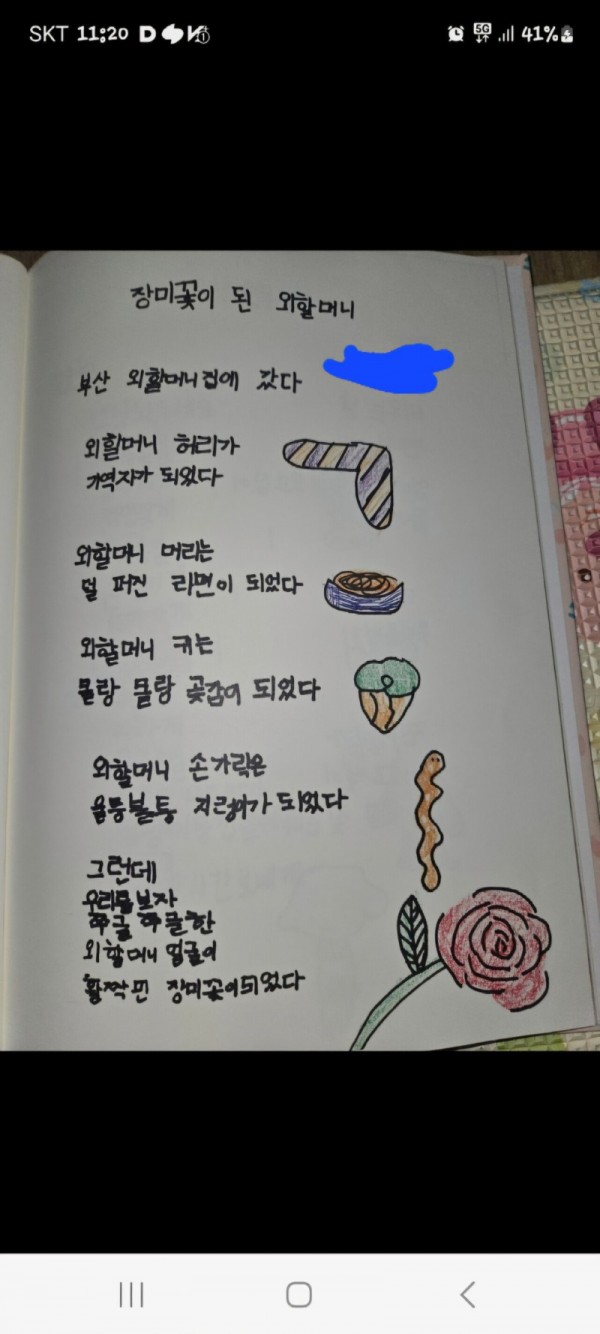 SKT 11:20
5G 41%
장미꽃이 된 외할머니
부산 외할머니집에 갔다
외할머니 허리가
기역자가 되었다
외할머니 머리는
덜 퍼진 라면이 되었다
외할머니 귀는
말랑 말랑 곶감이 되었다
외할머니 손가락은
울퉁불퉁 지렁이가 되었다
그런데
우리를보자
쭈글 쭈글한
외할머니 얼굴이
활짝 핀 장미꽃이되었다